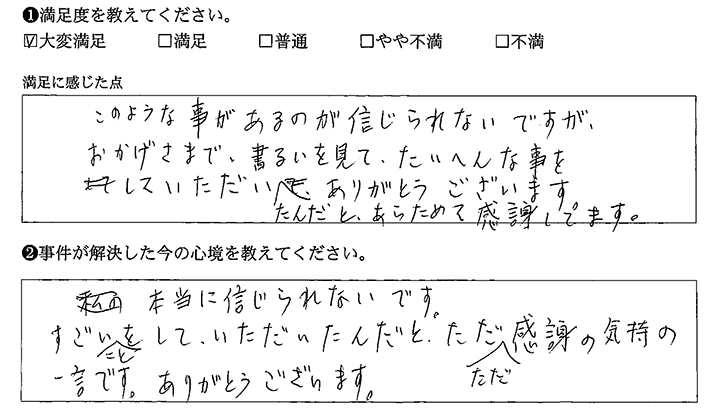 ❶満足度を教えてください。
☑大変満足 □満足 □普通 □やや不満 □不満
満足に感じた点
このような事があるのが信じられないですが、
おかげさまで、書るいを見て、たいへんな事を
していただいて、ありがとうございます。
たんだと、あらためて感謝してます。
❷事件が解決した今の心境を教えてください。
私の 本当に信じられないです。
すごいことをして、いただいたんだと、ただ感謝の気持の
ただ
一言です。ありがとうございます。